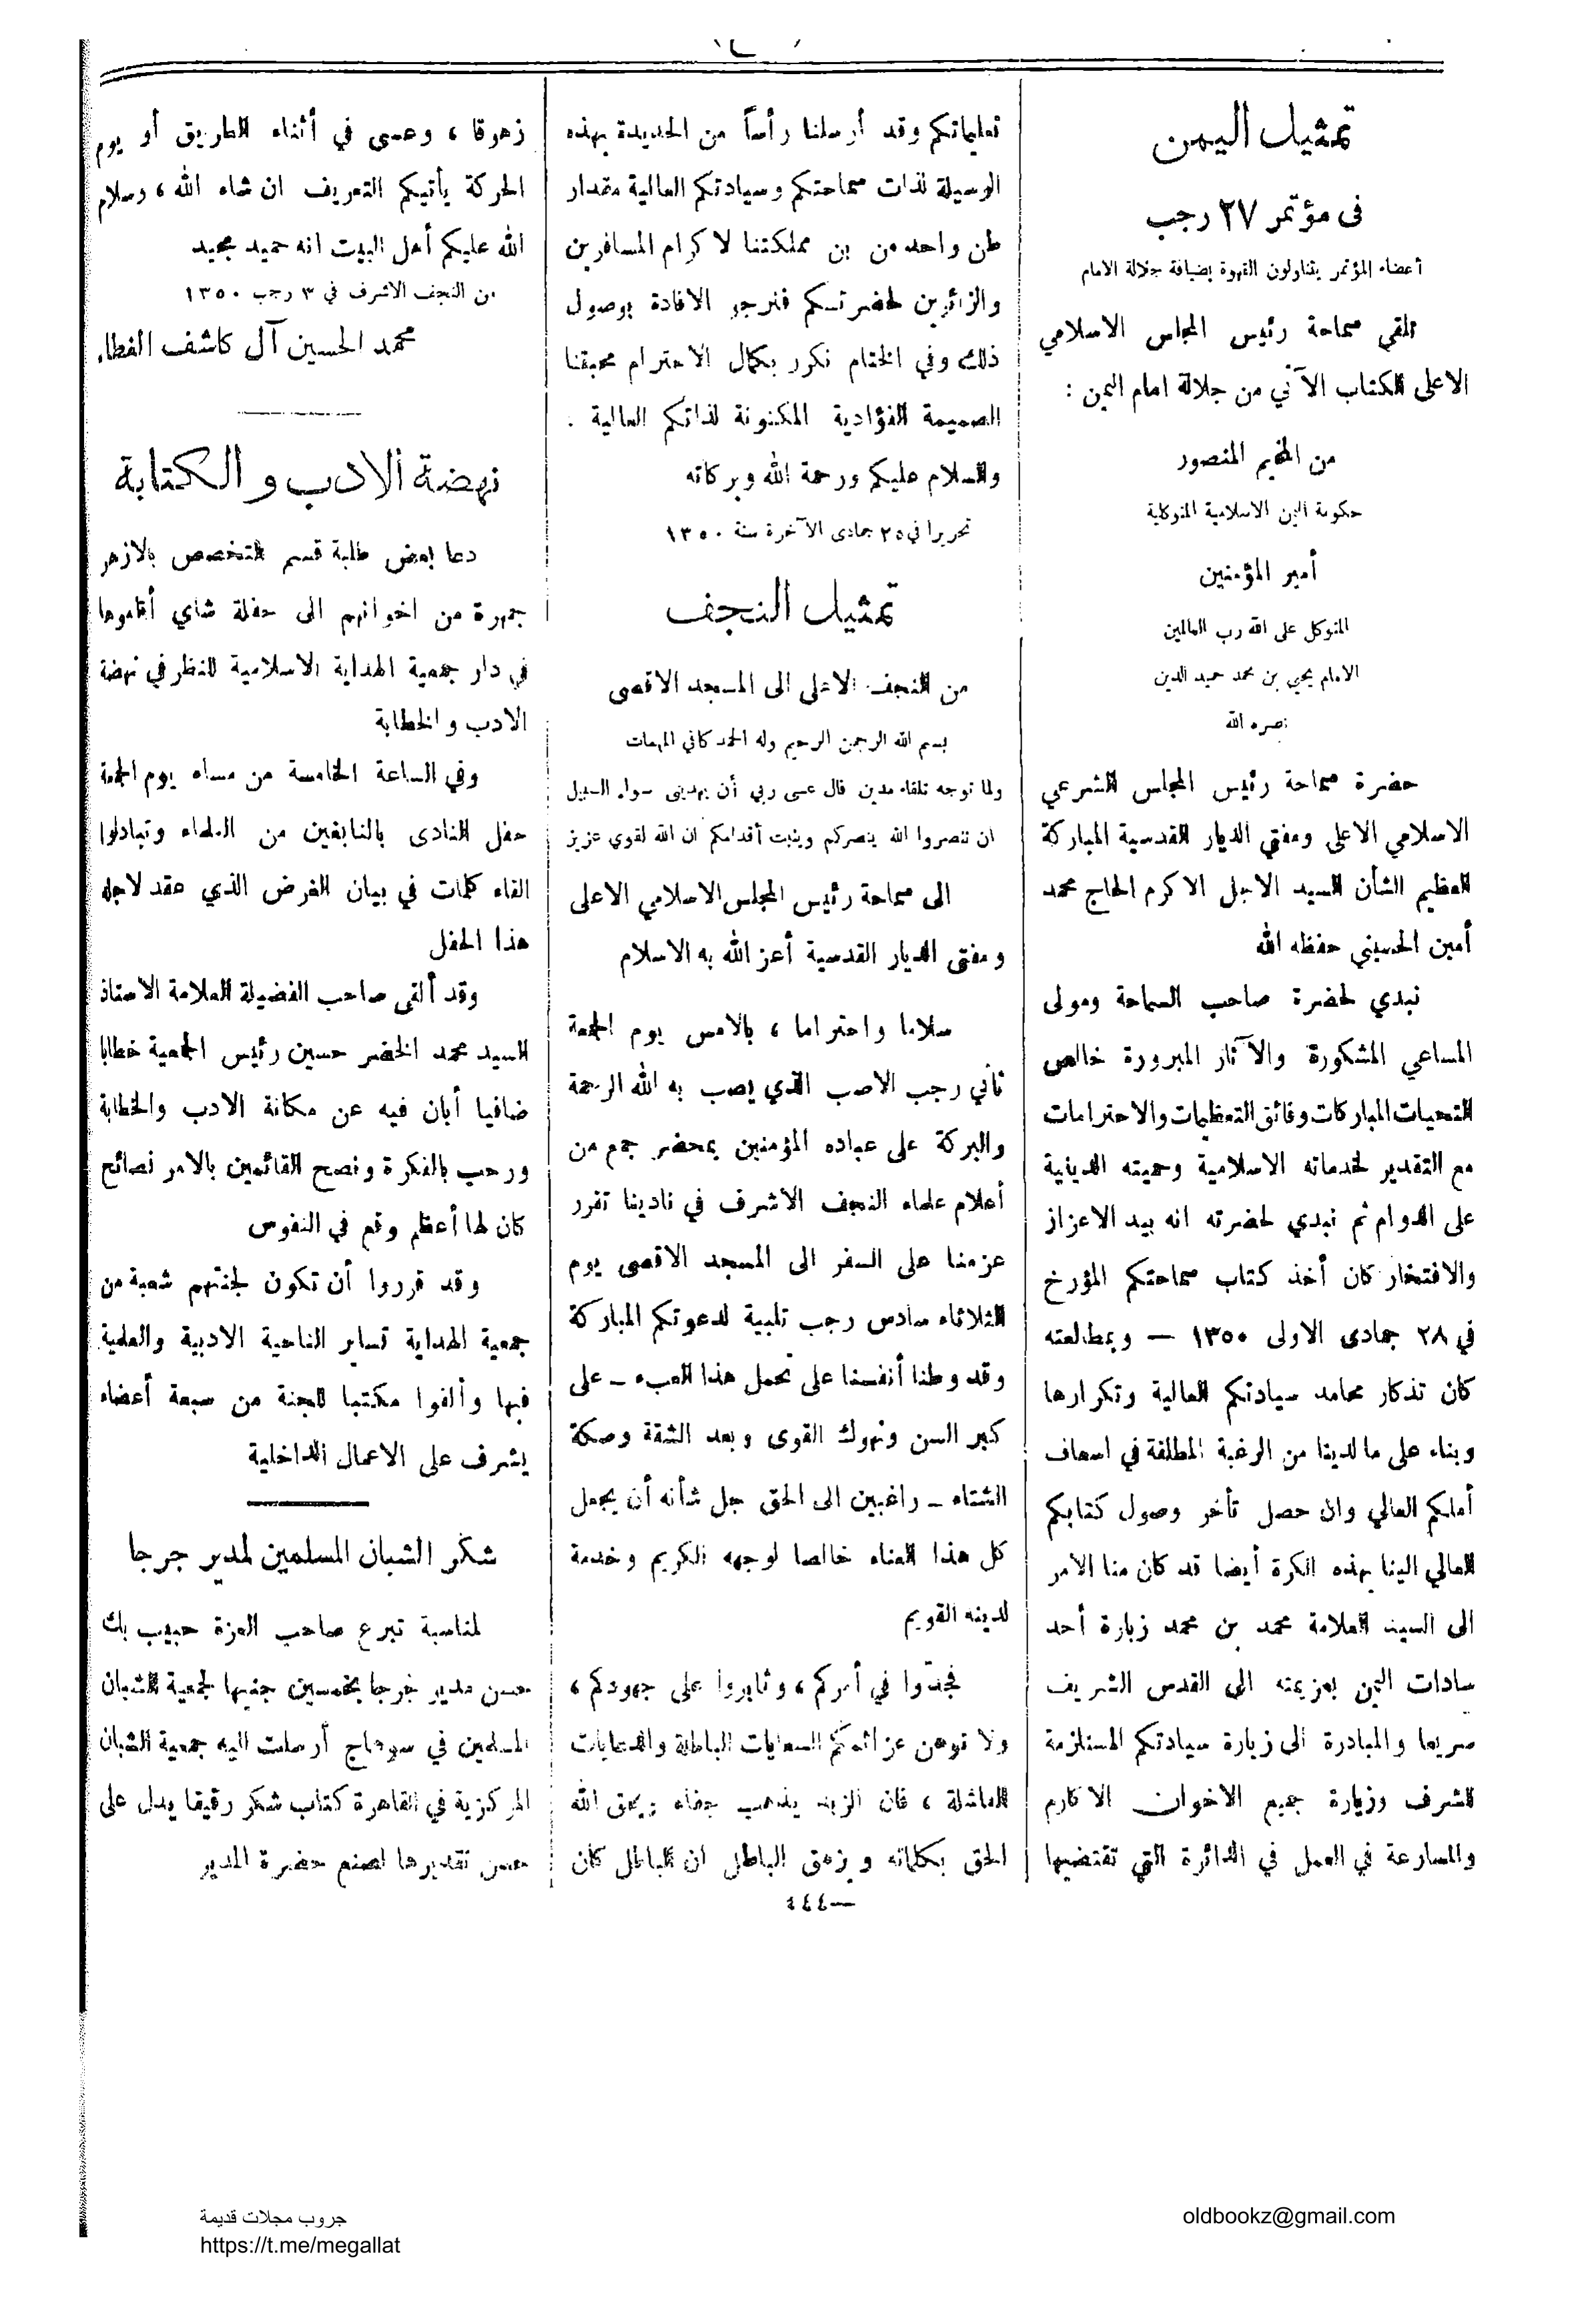 تمثيل اليمن
فى مؤتمر ٢٧ رجب
أعضاء المؤتمر يتناولون القهوة بضيافة جلالة الامام
تلقي سماحة رئيس المجلس الاسلامي
الاعلى الكتاب الآتي من جلالة امام اليمن :
من المخيم المنصور
حكومة اليمن الاسلامية المتوكلية
أمير المؤمنين
المتوكل على الله رب العالمين
الامام يحيى بن محمد حميد الدين
نصره الله
حضرة سماحة رئيس المجلس الشرعي
الاسلامي الاعلى ومفتي الديار القدسية المباركة
العظيم الشأن السيد الاجل الاكرم الحاج محمد
أمين الحسيني حفظه الله
نبدي لحضرة صاحب السماحة ومولى
المساعي المشكورة والآثار المبرورة خالص
التحيات المباركات وفائق التعظيمات والاحترامات
مع التقدير لخدماته الاسلامية وحميته الدينية
على الدوام ثم نبدي لحضرته انه بيد الاعزاز
والافتخار كان أخذ كتاب سماحتكم المؤرخ
في ٢٨ جمادى الاولى ١٣٥٠ — وبمطالعته
كان تذكار محامد سيادتكم العالية وتكرارها
وبناء على ما لدينا من الرغبة المطلقة في اسعاف
أملكم العالي وان حصل تأخر وصول كتابكم
العالي الينا بهذه الكرة أيضا قد كان منا الامر
الى السيد العلامة محمد بن محمد زبارة أحد
سادات اليمن بعزيمته الى القدس الشريف
سريعا والمبادرة الى زيارة سيادتكم المستلزمة
للشرف وزيارة جميع الاخوان الاكارم
والمسارعة في العمل في الدائرة التي تقتضيها
تعليماتكم وقد أرسلنا رأساً من الحديدة بهذه
الوسيلة لذات سماحتكم وسيادتكم العالية مقدار
طن واحد من بن مملكتنا لاكرام المسافرين
والزائرين لحضرتكم فنرجو الافادة بوصول
ذلك وفي الختام نكرر بكمال الاحترام محبتنا
الصميمة الفؤادية المكنونة لذاتكم العالية .
والسلام عليكم ورحمة الله وبركاته
تحريرا في ٢٥ جمادى الآخرة سنة ١٣٥٠
تمثيل النجف
من النجف الاعلى الى المسجد الاقصى
بسم الله الرحمن الرحيم وله الحمد كافي المهمات
ولما توجه تلقاء مدين قال عسى ربي أن يهديني سواء السبيل
ان تنصروا الله ينصركم ويثبت أقدامكم ان الله لقوي عزيز
الى سماحة رئيس المجلس الاسلامي الاعلى
ومفتى الديار القدسية أعز الله به الاسلام
سلاما واحتراما ، بالامس يوم الجمعة
ثاني رجب الاصب الذي يصب به الله الرحمة
والبركة على عباده المؤمنين بمحضر جمع من
أعلام علماء النجف الاشرف في نادينا تقرر
عزمنا على السفر الى المسجد الاقصى يوم
الثلاثاء سادس رجب تلبية لدعوتكم المباركة
وقد وطنا أنفسنا على تحمل هذا العبء – على
كبر السن ونهوك القوى وبعد الشقة وصكة
الشتاء – راغبين الى الحق جل شأنه أن يجعل
كل هذا العناء خالصا لوجهه الكريم وخدمة
لدينه القويم
فجدّوا في أمركم ، وثابروا على جهودكم ،
ولا توهن عزائمكم السعايات الباطلة والدعايات
الفاشلة ، فان الزبد يذهب جفاء ويحق الله
الحق بكلماته ويزهق الباطل ان الباطل كان
زهوقا ، وعسى في أثناء الطريق أو يوم
الحركة يأتيكم التعريف ان شاء الله ، وسلام
الله عليكم أهل البيت انه حميد مجيد
من النجف الاشرف في ٣ رجب ١٣٥٠
محمد الحسين آل كاشف الغطاء
نهضة الادب والكتابة
دعا بعض طلبة قسم التخصص بالازهر
جمهرة من اخوانهم الى حفلة شاي أقاموها
في دار جمعية الهداية الاسلامية للنظر في نهضة
الادب والخطابة
وفي الساعة الخامسة من مساء يوم الجمعة
حفل النادى بالنابغين من العلماء وتبادلوا
القاء كلمات في بيان الغرض الذي عقد لاجله
هذا الحفل
وقد ألقى صاحب الفضيلة العلامة الاستاذ
السيد محمد الخضر حسين رئيس الجمعية خطابا
ضافيا أبان فيه عن مكانة الادب والخطابة
ورحب بالفكرة ونصح القائمين بالامر نصائح
كان لها أعظم وقع في النفوس
وقد قرروا أن تكون لجنتهم شعبة من
جمعية الهداية تساير الناحية الادبية والعلمية
فيها وألفوا مكتبا للجنة من سبعة أعضاء
يشرف على الاعمال الداخلية
شكر الشبان المسلمين لمدير جرجا
لمناسبة تبرع صاحب العزة حبيب بك
حسن مدير جرجا بخمسين جنيها لجمعية الشبان
المسلمين في سوهاج أرسلت اليه جمعية الشبان
المركزية في القاهرة كتاب شكر رقيقا يدل على
حسن تقديرها لصنع حضرة المدير
—٤٤٤
جروب مجلات قديمة
https://t.me/megallat
oldbookz@gmail.com